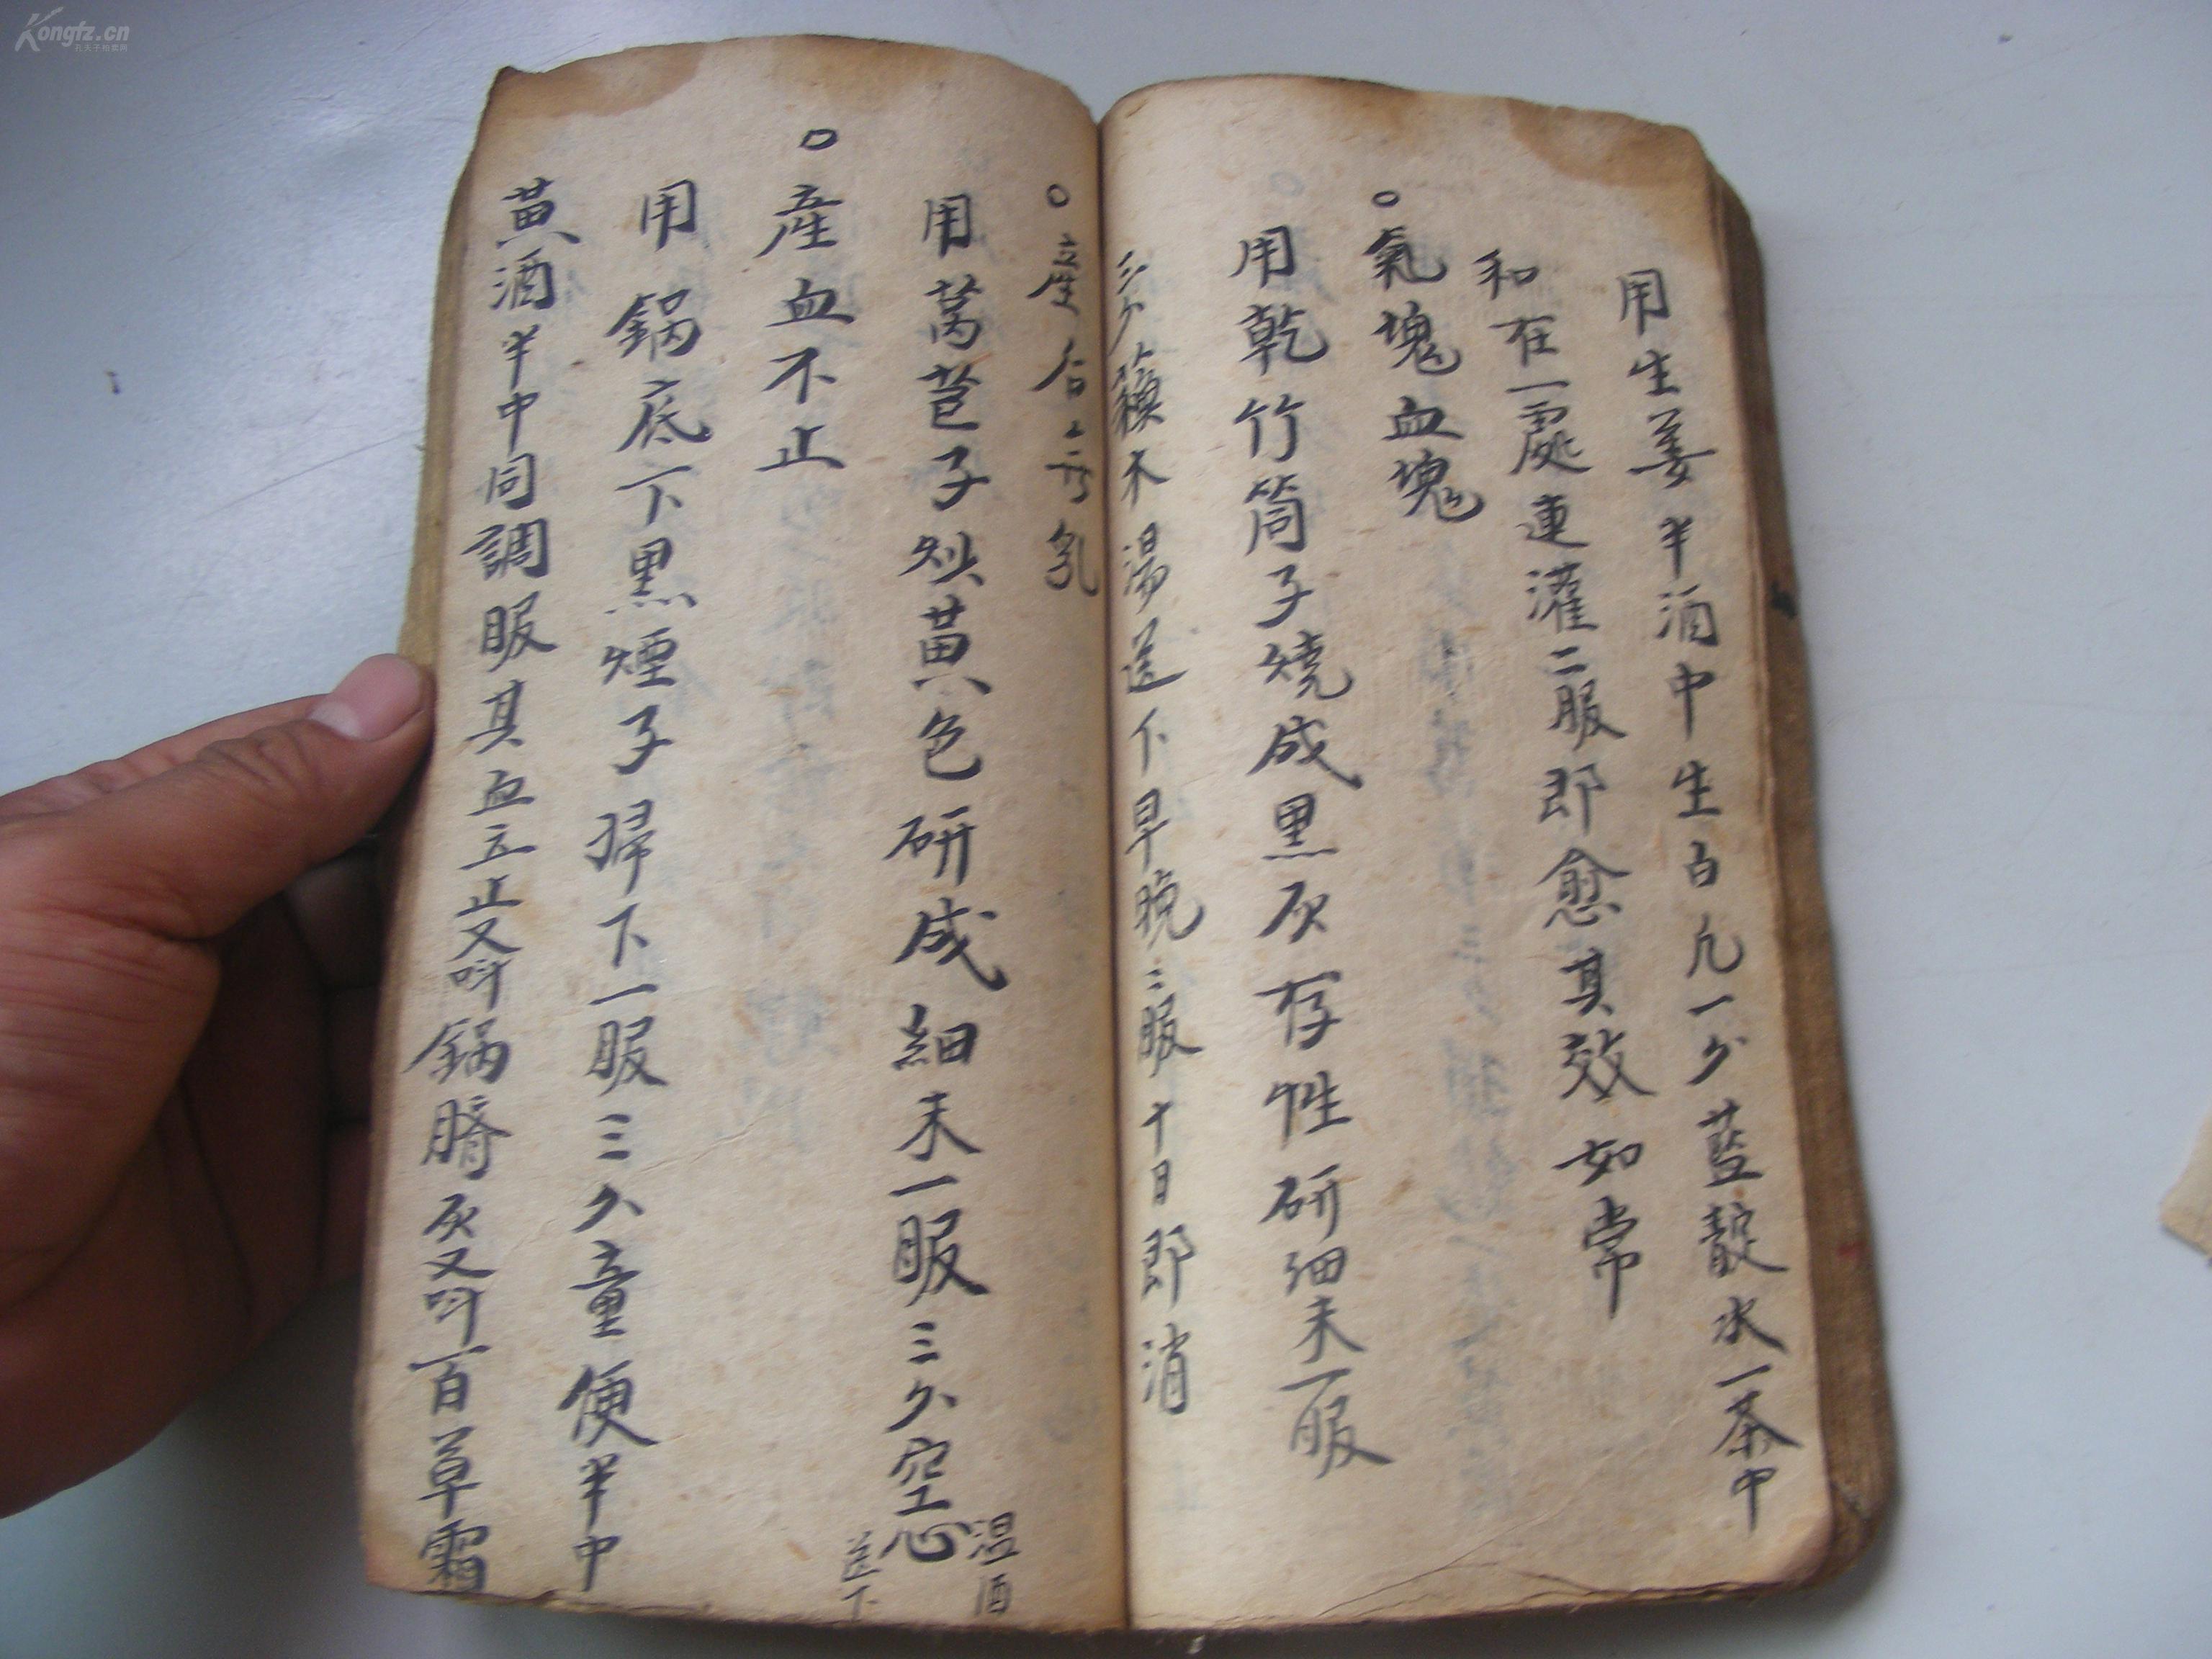 用生姜半酒中生白凡一分藍靛水一茶中
和在一處連灌二服即愈其效如常
○氣塊血塊
用乾竹筒子燒成黑灰存性研細末一服
三分蘓木湯送下早晚二服十日即消
○産后無乳
用萵苣子炒黃色研成細末一服三分空心
温酒
送下
○産血不止
用鍋底下黑煙子掃下一服三分童便半中
黃酒半中同調服其血立止又叫鍋臍灰又叫百草霜
Kongfz.cn